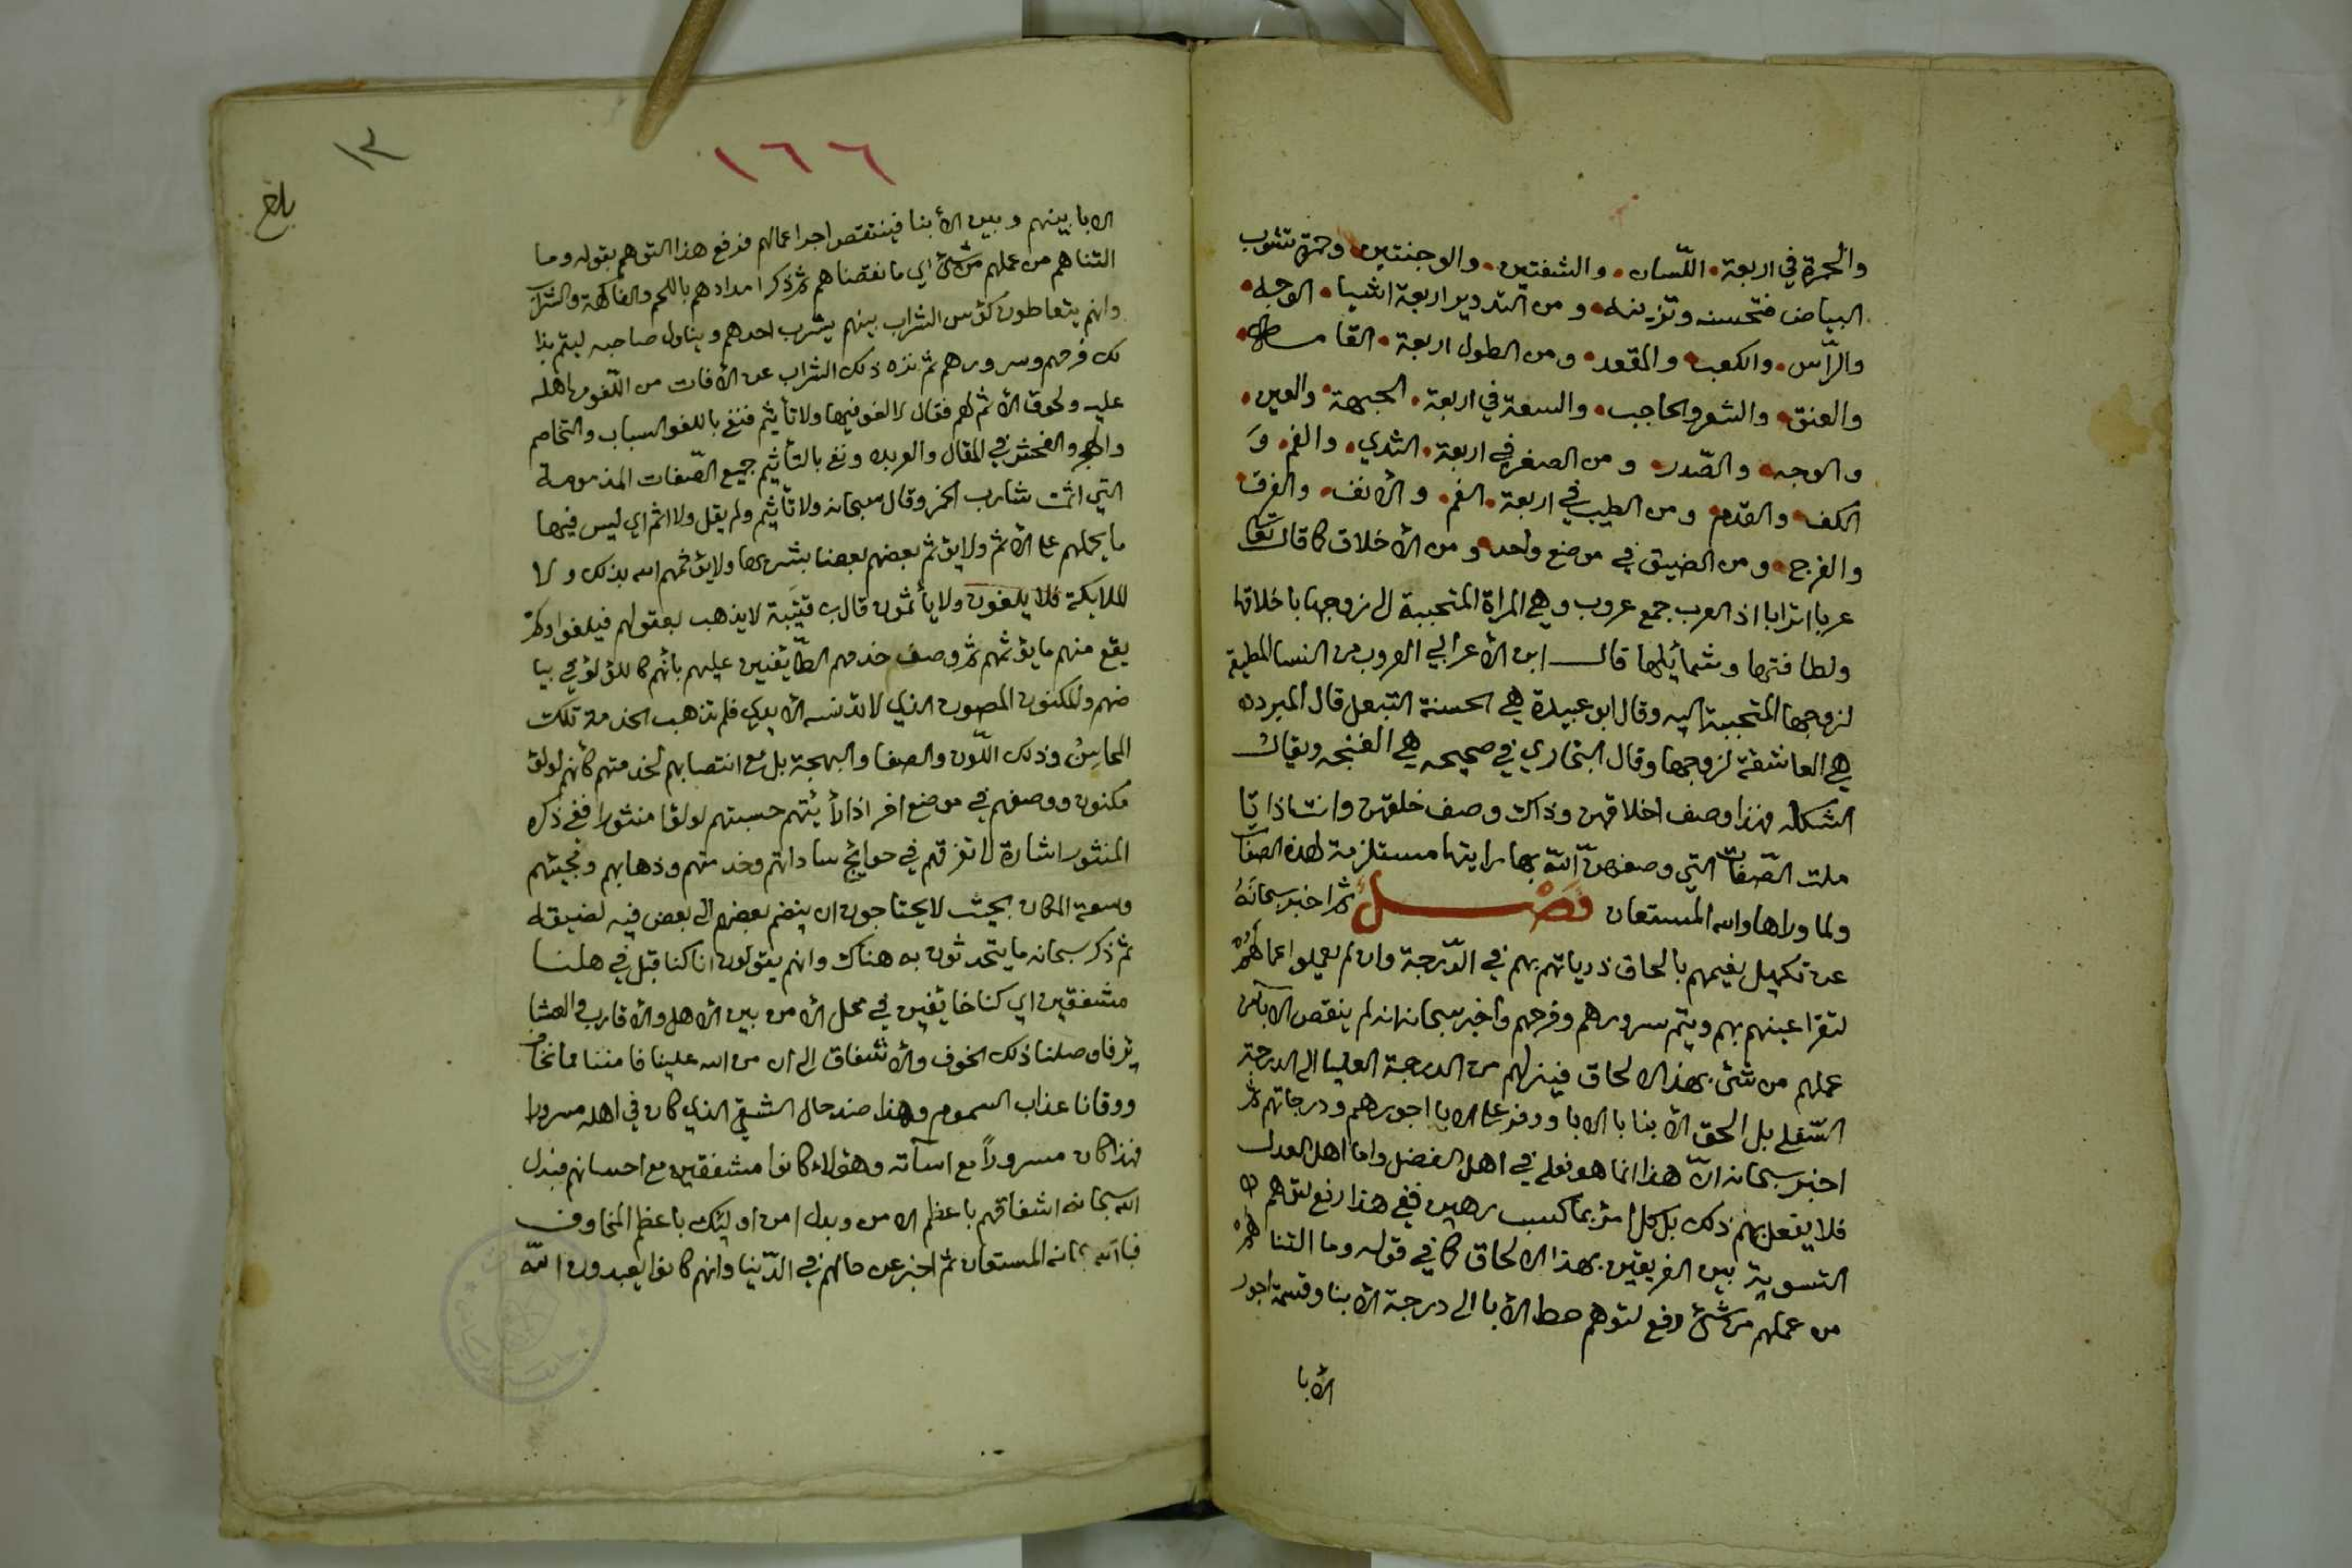 والحمرة في اربعة اللّسان والشفتين والوجنتين وحمرة تشوب
البياض فتحسنه وتزينه ومن التدوير اربعة اشيا الوجه
والرّاس والكعب والمقعد ومن الطول اربعة القامة
والعنق والشعر والحاجب والسعة في اربعة الجبهة والعين
والوجه والصّدر ومن الصغر في اربعة الثدي والفم وَ
الكف والقدم ومن الطيب في اربعة الفم والأنف والفرق
والفرج ومن الضيق في موضع واحد ومن الأخلاق كما قال تعا
عربا اترابا اذ العرب جمع عروب وهي المراة المتحببة الى زوجها باخلاقها
ولطافتها وشمائلها قال ابن الأعرابي العروب من النسا المطيعة
لزوجها المتحببة اليه وقال ابو عبيدة هي الحسنة التبعل قال المبرد
هي العاشقة لزوجها وقال البخاري في صحيحه هي الغنجه ويقال
الشكله فهذا وصف اخلاقهن وذاك وصف خلقهن وانت اذا تا
ملت الصّفات التي وصفهنّ اللّه بها رايتها مستلزمة لهذه الصفات
ولما وراها والله المستعان فَصْلٌ ثم اخبر سبحانَهُ
عن تكميل نعيمهم بالحاق ذرياتهم بهم في الدّرجة وان لم يعملوا اعمالهم
لتقر اعينهم بهم ويتم سرورهم وفرحهم واخبر سبحانه انه لم ينقص الآبا من
عملهم من شئ بهذا الالحاق فينزلهم من الدرجة العليا الى الدرجة
السّفلى بل الحق الأبنا بالابا ووفر على الابا اجورهم ودرجاتهم ثم
اخبر سبحانه انّ هذا انما هو فعله في اهل الفضل واما اهل العدل
فلا يفعل بهم ذلك بل كل امرئ بما كسب رهين ففي هذا رفع لتوهم
التسوية بين الفريقين بهذا الالحاق كما في قوله وما التناهم
من عملهم من شئ رفع لتوهم حط الأبا الى درجة الأبنا وقسمة اجور
الأبا
١٦٦
١٢
بلغ
الابا بينهم وبين الأبنا فينتقص اجر اعمالهم فرفع هذا التوهم بقوله وما
التناهم من عملهم من شئ اي ما نقصناهم ثم ذكر امدادهم باللحم والفاكهة والشراب
وانهم يتعاطون كؤس الشراب بينهم يشرب احدهم ويناول صاحبه ليتم بذا
لك فرحهم وسرورهم ثم نزه ذلك الشراب عن الأفات من اللّغو من اهله
عليه ولحوق الأثم لهم فقال لا لغو فيها ولا تأثيم فنفى باللغو السباب والتخاصم
والهجر والفحش في المقال والعربده ونفى بالتأثيم جميع الصّفات المذمومة
التي اثمت شارب الخمر وقال سبحانه ولا تأثيم ولم يقل ولا اثم اي ليس فيها
ما يحملهم على الأثم ولا يؤثم بعضهم بعضا بشربها ولا يؤثمهم الله بذلك ولا
الملايكة فلا يلغون ولا يأثمون قال ابن قتيبة لا يذهب بعقولهم فيلغوا ولم
يقع منهم ما يؤثمهم ثم وصف خدمهم الطّائفين عليهم بأنهم كاللؤلؤ في بيا
ضهم والمكنون المصون الذي لا تدنسه الأيدي فلم تذهب الخدمة تلك
المحاسِنُ وذلك اللّون والصفا والبهجة بل مع انتصابهم لخدمتهم كأنهم لولؤ
مكنون ووصفهم في موضع اخر اذا رأيتهم حسبتهم لولؤا منثورا ففي ذكره
المنثور اشارة لا تفرقهم في حوايج ساداتهم وخدمتهم وذهابهم ومجيئهم
وسعة المكان بحيث لا يحتاجون ان ينضم بعضهم الى بعض فيه لضيقه
ثم ذكر سبحانه ما يتحدثون به هناك وانهم يقولون انا كنا قبل في اهلنا
مشفقين اي كنا خائفين في محل الأمن بين الأهل والأقارب والعشا
ئر فاوصلنا ذلك الخوف والأشفاق الى ان من الله علينا فامننا مما نخاف
ووقانا عذاب السموم وهذا ضد حال الشقي الذي كان في اهله مسرورا
فهذا كان مسروراً مع اسآته وهؤلاء كانوا مشفقين مع احسانهم فبدل
الله سبحانه اشفاقهم باعظم الامن وبدل امن اوليئك باعظم المخاوف
فبالله سبحانه المستعان ثم اخبر عن حالهم في الدّنيا وانهم كانوا يعبدون اللّه